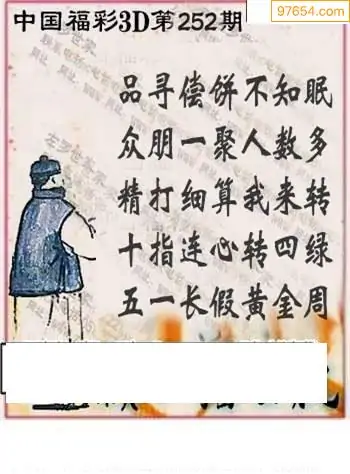 97654.com
中国福彩3D第252期
品寻偿饼不知眠
众朋一聚人数多
精打细算我来转
十指连心转四绿
五一长假黄金周